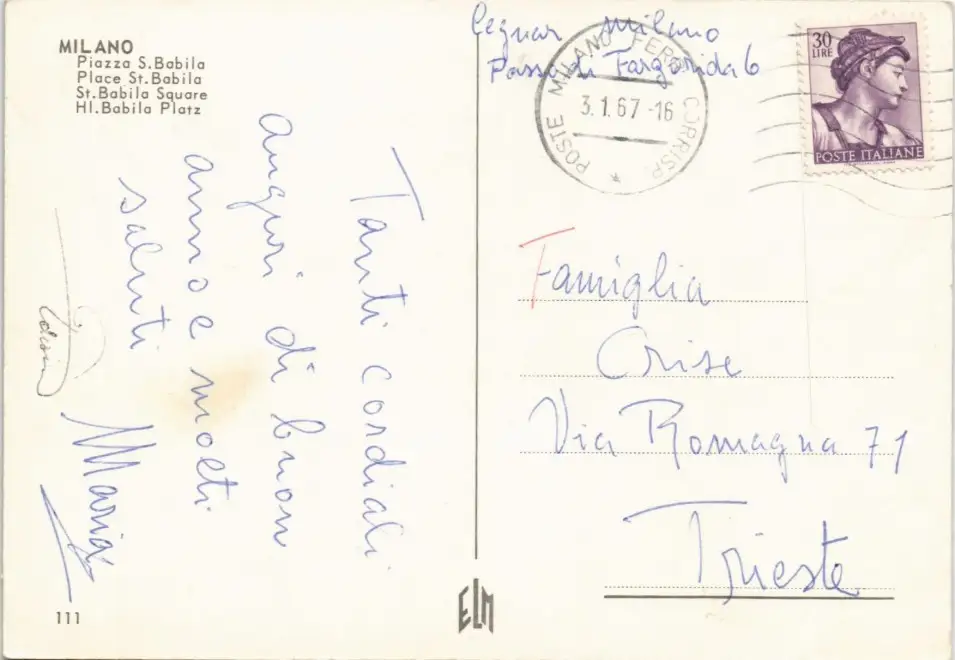 MILANO
Piazza S.Babila
Place St.Babila
St.Babila Square
Hl.Babila Platz
Tanti cordiali
auguri di buon
anno e molti
saluti
Maria
111
ELM
milano
Pass. di 6
POSTE MILANO FERR. CORRISP.
3.1.67-16
30
LIRE
POSTE ITALIANE
Famiglia
Crise
Via Romagna 71
Trieste